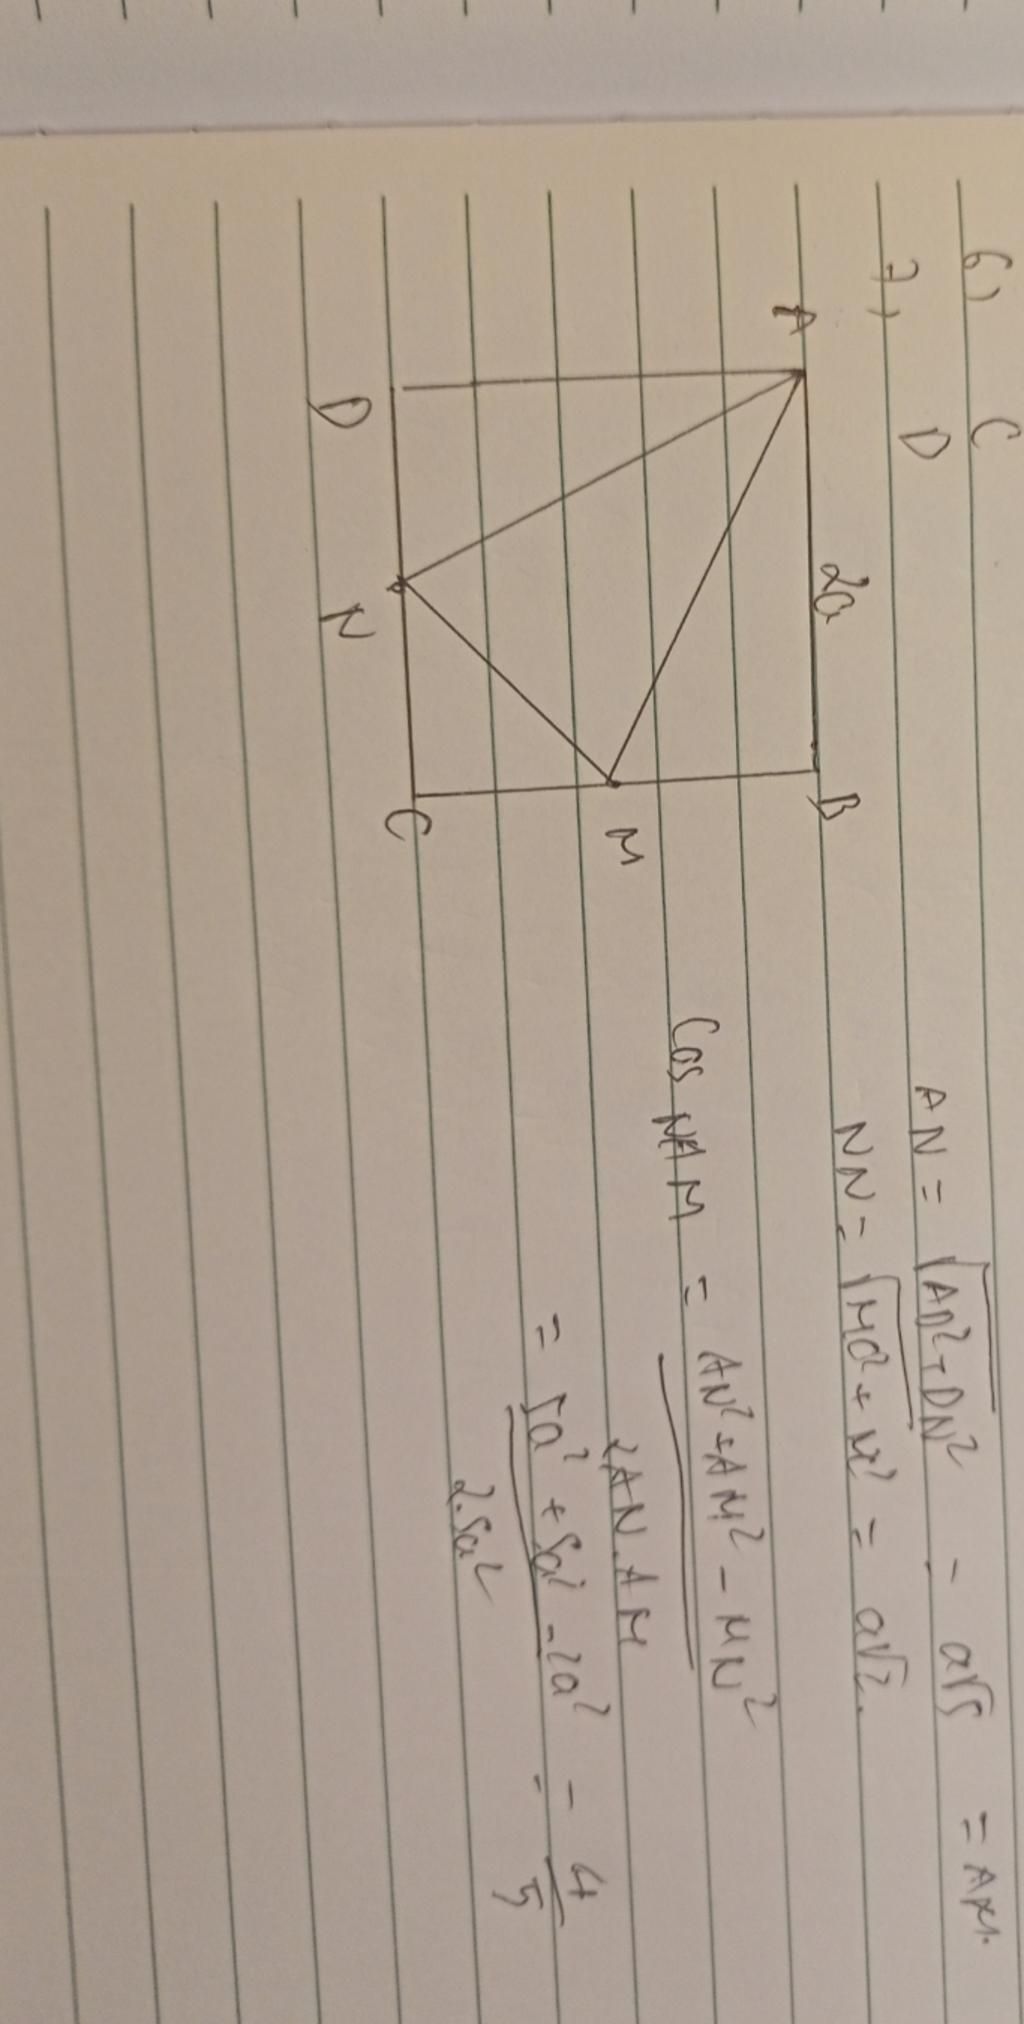 6) C
7) D
A 2a B
M
D N C
AN = √AD²+DN² = a√5 = AM.
NN = √MC²+NC² = a√2.
Cos NAM = AN²+AM² - MN²
2AN.AM
= 5a² + 5a² - 2a² = 4
2.5a² 5